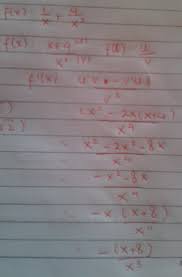 f(x) = 1/x + 4/x²
f(x) = x+4 (u) / x² (v) f(x) = u/v
f'(x) = u'v - v'u / v²
= x² - 2x(x+4) / x⁴
= x² - 2x² - 8x / x⁴
= -x² - 8x / x⁴
= -x (x+8) / x⁴
= -(x+8) / x³